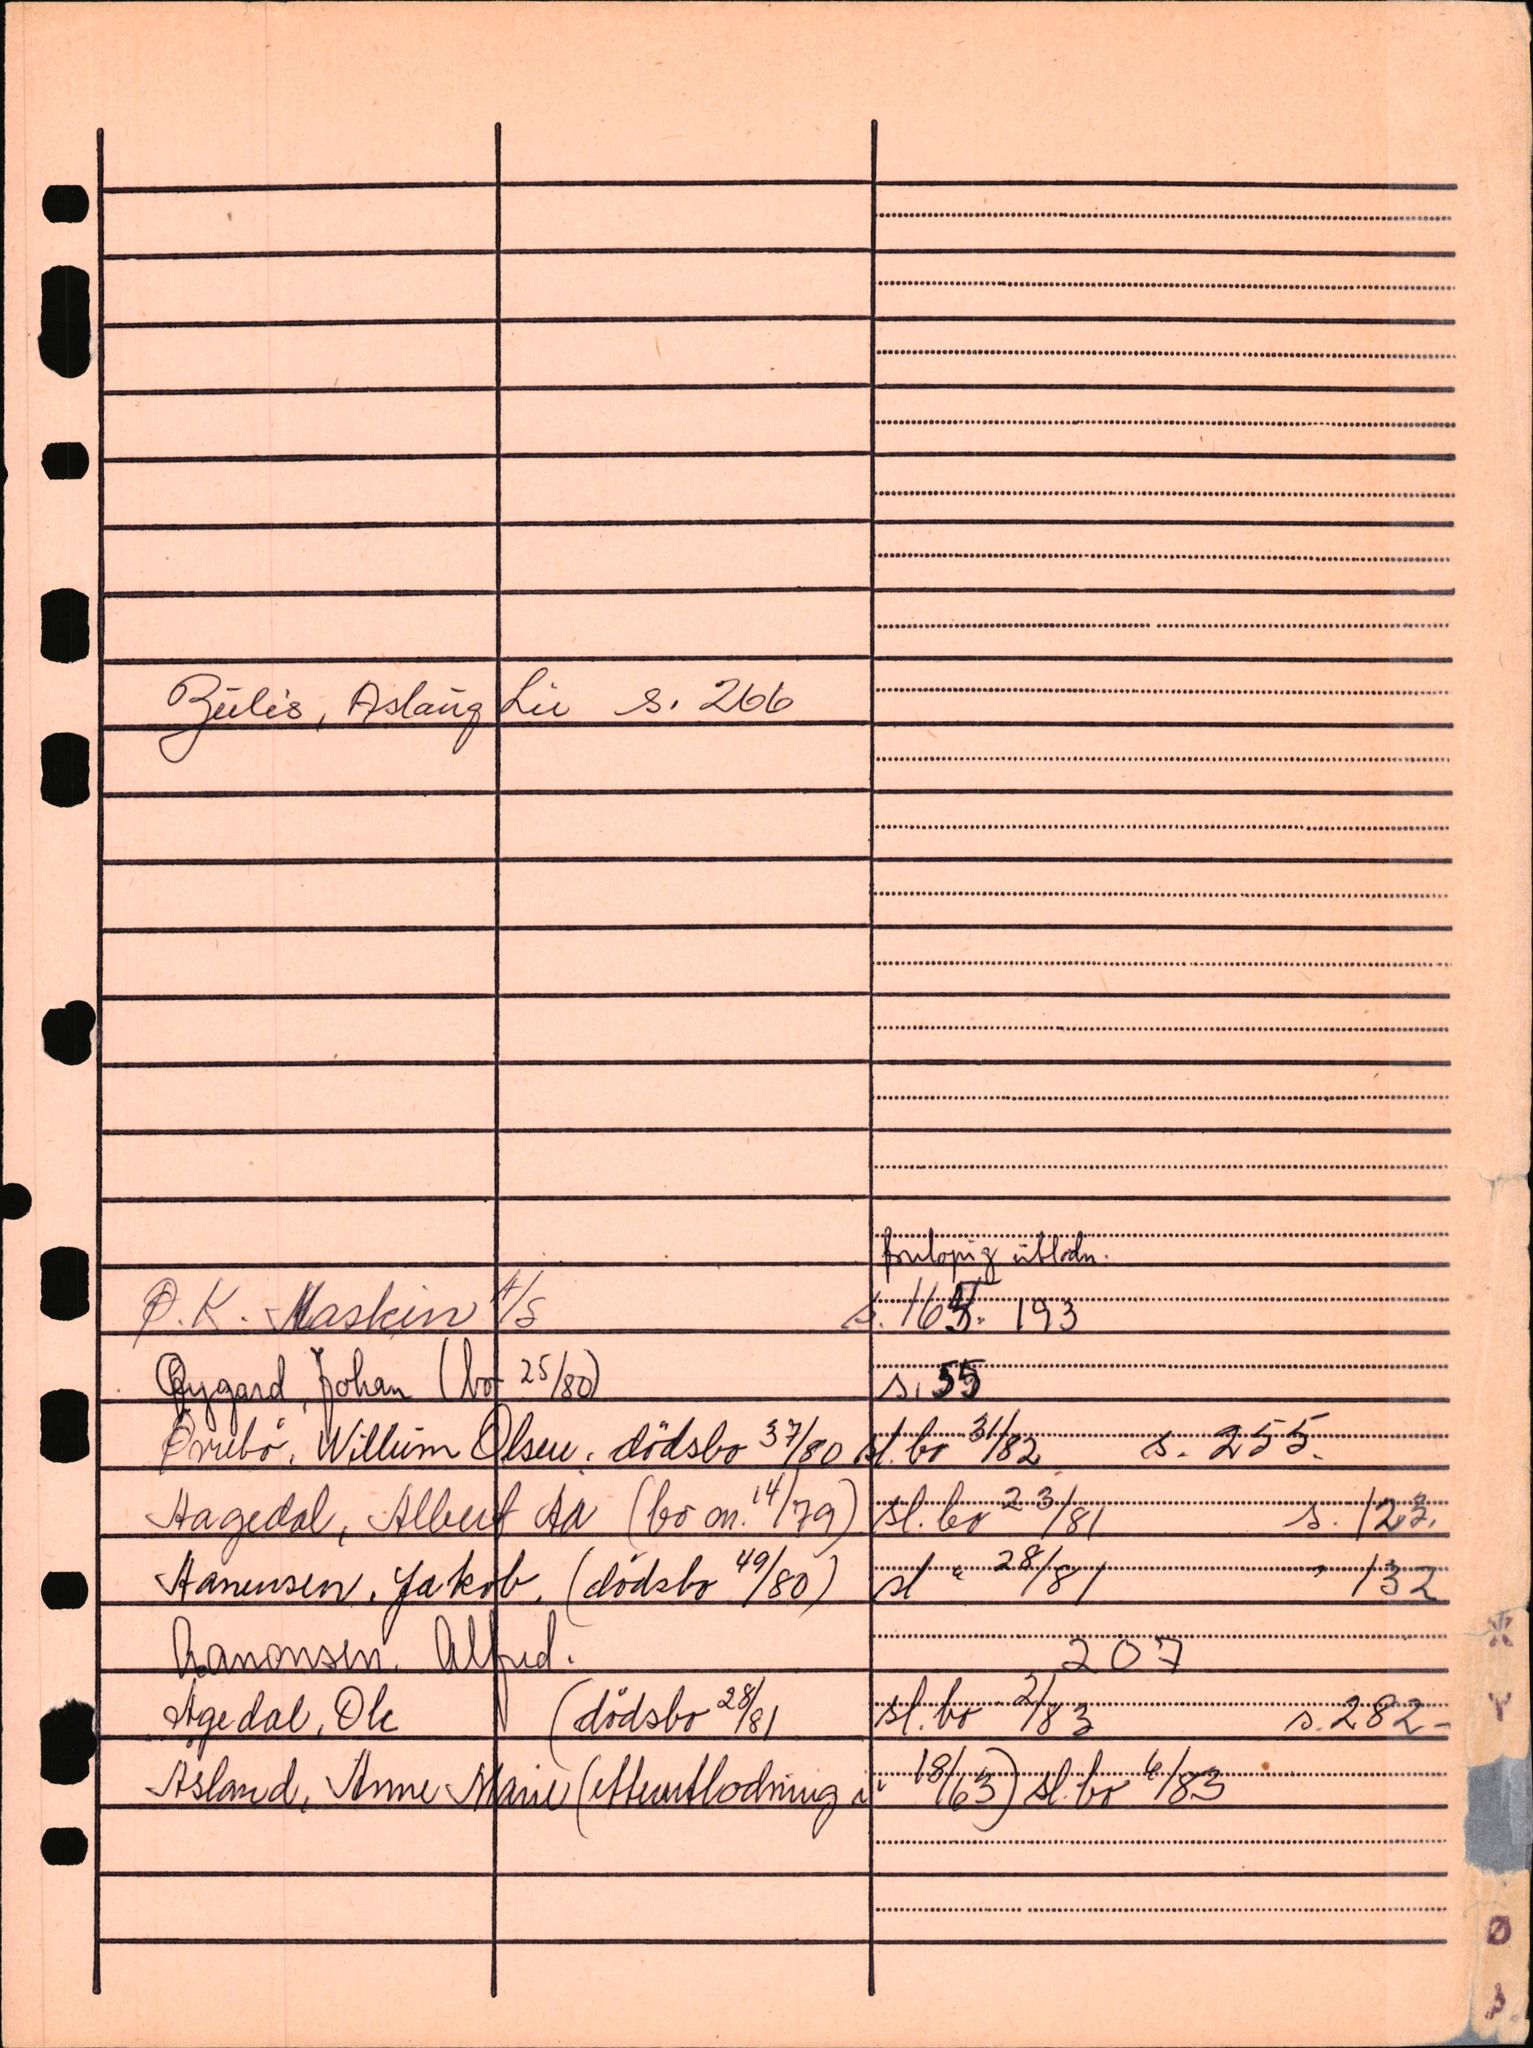 Bülis, Aslaug Lie s. 266
foreløpig utlodn.
Ø.K. Maskin A/S s. 165. 193
Øygard, Johan (bo 25/80) s. 55
Øvrebö, Willum Olsen. dödsbo 37/80 sl. bo 31/82 s. 255.
Aagedal, Albert Aa (bo nr. 14/79) sl. bo 23/81 s. 123.
Aanensen, Jakob. (dödsbo 49/80) sl " 28/81 " 132
Aanonsen. Alfred. 207
Agedal, Ole (dödsbo 28/81 sl. bo 2/83 s. 282-
Asland, Anne Marie (etterutlodning i 18/63) sl. bo 6/83
X
Y
Ø